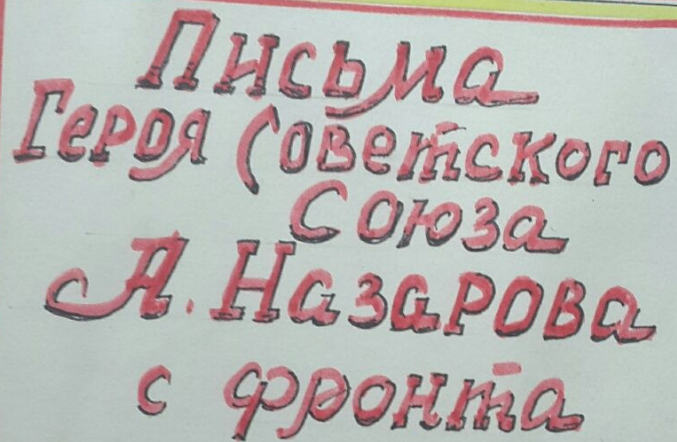 Письма
Героя Советского
Союза
А. Назарова
с фронта